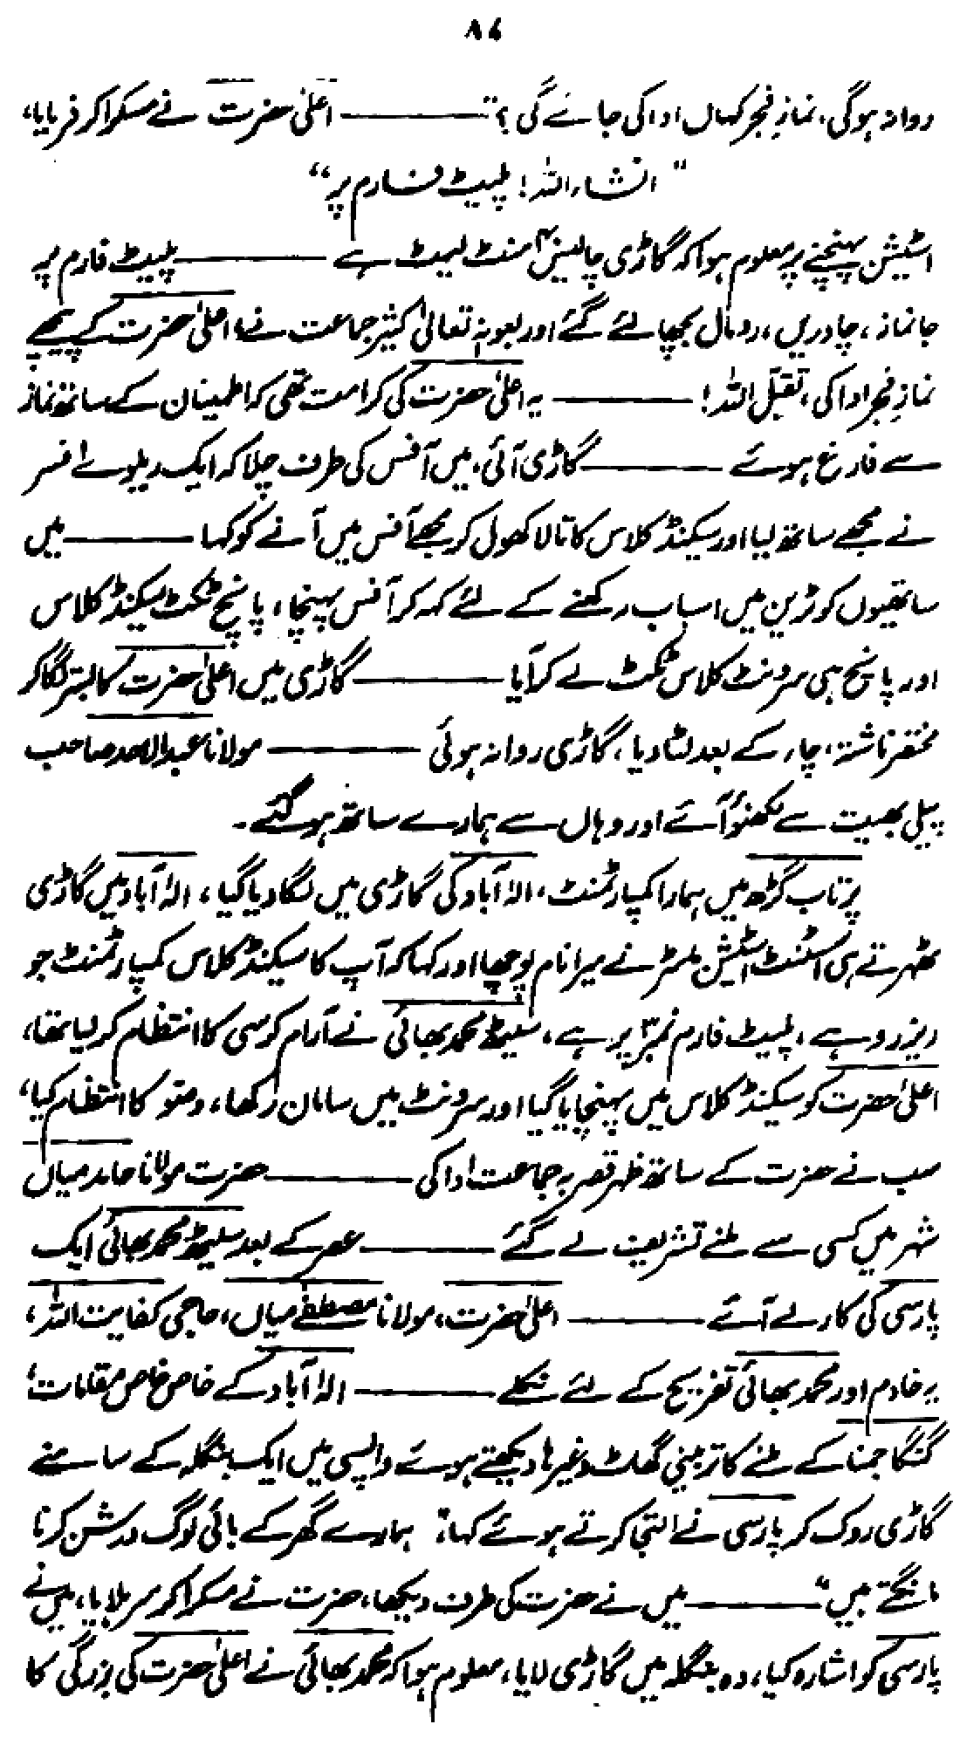 ۸۶
روانہ ہوگی، نمازِ فجر کہاں ادا کی جائے گی؟" ——— اعلیٰ حضرت نے مسکرا کر فرمایا،
"انشاء اللہ! پلیٹ فارم پر"
اسٹیشن پہنچنے پر معلوم ہوا کہ گاڑی چالیس۴۰ منٹ لیٹ ہے ——— پلیٹ فارم پر
جانماز، چادریں، رومال بچھائے گئے اور بعونہٖ تعالیٰ کثیر جماعت نے اعلیٰ حضرت کے پیچھے
نمازِ فجر ادا کی، تقبل اللہ! ——— یہ اعلیٰ حضرت کی کرامت تھی کہ اطمینان کے ساتھ نماز
سے فارغ ہوئے ——— گاڑی آئی، میں آفس کی طرف چلا کہ ایک ریلوے افسر
نے مجھے ساتھ لیا اور سیکنڈ کلاس کا تالا کھول کر مجھے آفس میں آنے کو کہا ——— میں
ساتھیوں کو ٹرین میں اسباب رکھنے کے لئے کہہ کر آفس پہنچا، پانچ ٹکٹ سیکنڈ کلاس
اور پانچ ہی سرونٹ کلاس ٹکٹ لے کر آیا ——— گاڑی میں اعلیٰ حضرت کا بستر لگا کر
مختصر ناشتہ، چار کے بعد لٹا دیا، گاڑی روانہ ہوئی ——— مولانا عبدالاحد صاحب
پیلی بھیت سے لکھنؤ آئے اور وہاں سے ہمارے ساتھ ہو گئے۔
پرتاب گڑھ میں ہمارا کمپارٹمنٹ، الہٰ آباد کی گاڑی میں لگا دیا گیا، الہٰ آباد میں گاڑی
ٹھہرتے ہی اسٹنٹ اسٹیشن ماسٹر نے میرا نام پوچھا اور کہا کہ آپ کا سیکنڈ کلاس کمپارٹمنٹ جو
ریزرو ہے، پلیٹ فارم نمبر۳ پر ہے، سیٹھ محمد بھائی نے آرام کرسی کا انتظام کر لیا تھا،
اعلیٰ حضرت کو سیکنڈ کلاس میں پہنچایا گیا اور سرونٹ میں سامان رکھا، وضو کا انتظام کیا،
سب نے حضرت کے ساتھ ظہر قصر بہ جماعت ادا کی ——— حضرت مولانا حامد میاں
شہر میں کسی سے ملنے تشریف لے گئے ——— عصر کے بعد سیٹھ محمد بھائی ایک
پارسی کی کار لے آئے ——— اعلیٰ حضرت، مولانا مصطفٰے میاں، حاجی کفایت اللہ،
یہ خادم اور محمد بھائی تفریح کے لئے نکلے ——— الہٰ آباد کے خاص خاص مقامات،
گنگا جمنا کے ملنے کا تربینی گھاٹ وغیرہا دیکھتے ہوئے واپسی میں ایک بنگلہ کے سامنے
گاڑی روک کر پارسی نے التجا کرتے ہوئے کہا، "ہمارے گھر کے بائی لوگ درشن کرنا
مانگتے ہیں" ——— میں نے حضرت کی طرف دیکھا، حضرت نے مسکرا کر سر ہلایا، میں نے
پارسی کو اشارہ کیا، وہ بنگلہ میں گاڑی لایا، معلوم ہوا کہ محمد بھائی نے اعلیٰ حضرت کی بزرگی کا